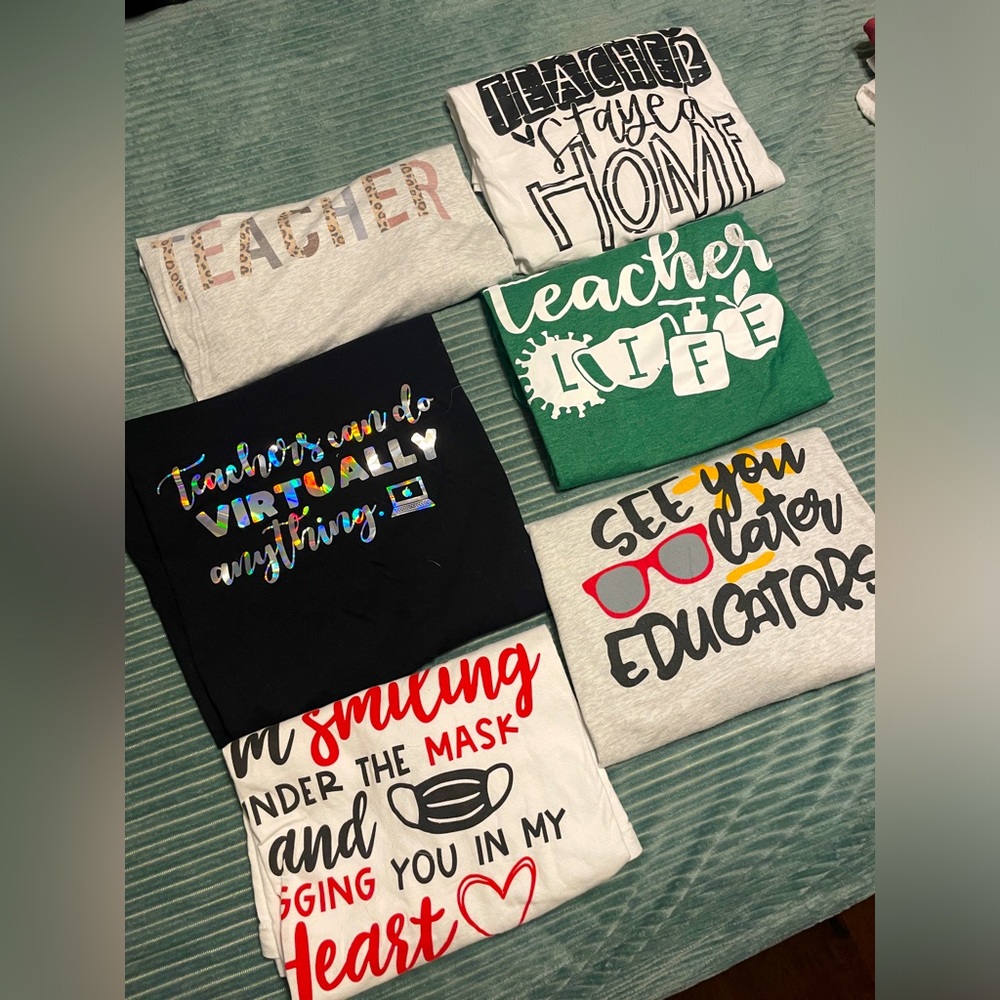 TEACHER
stayed
HOME
TEACHER
teacher
LIFE
Teachers can do
VIRTUALLY
anything.
SEE you
later
EDUCATORS
smiling
UNDER THE MASK
and
GGING YOU IN MY
Heart